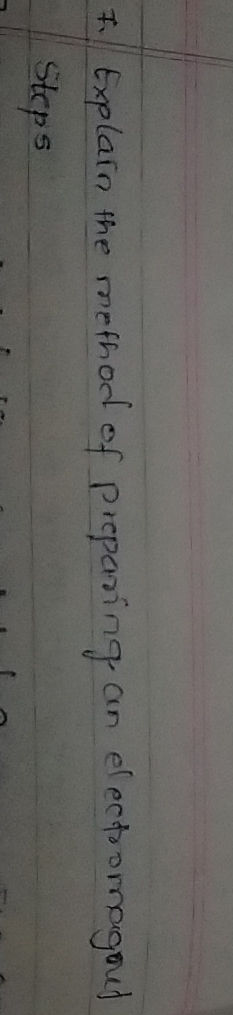 7. Explain the method of preparing an electromagnet
Steps